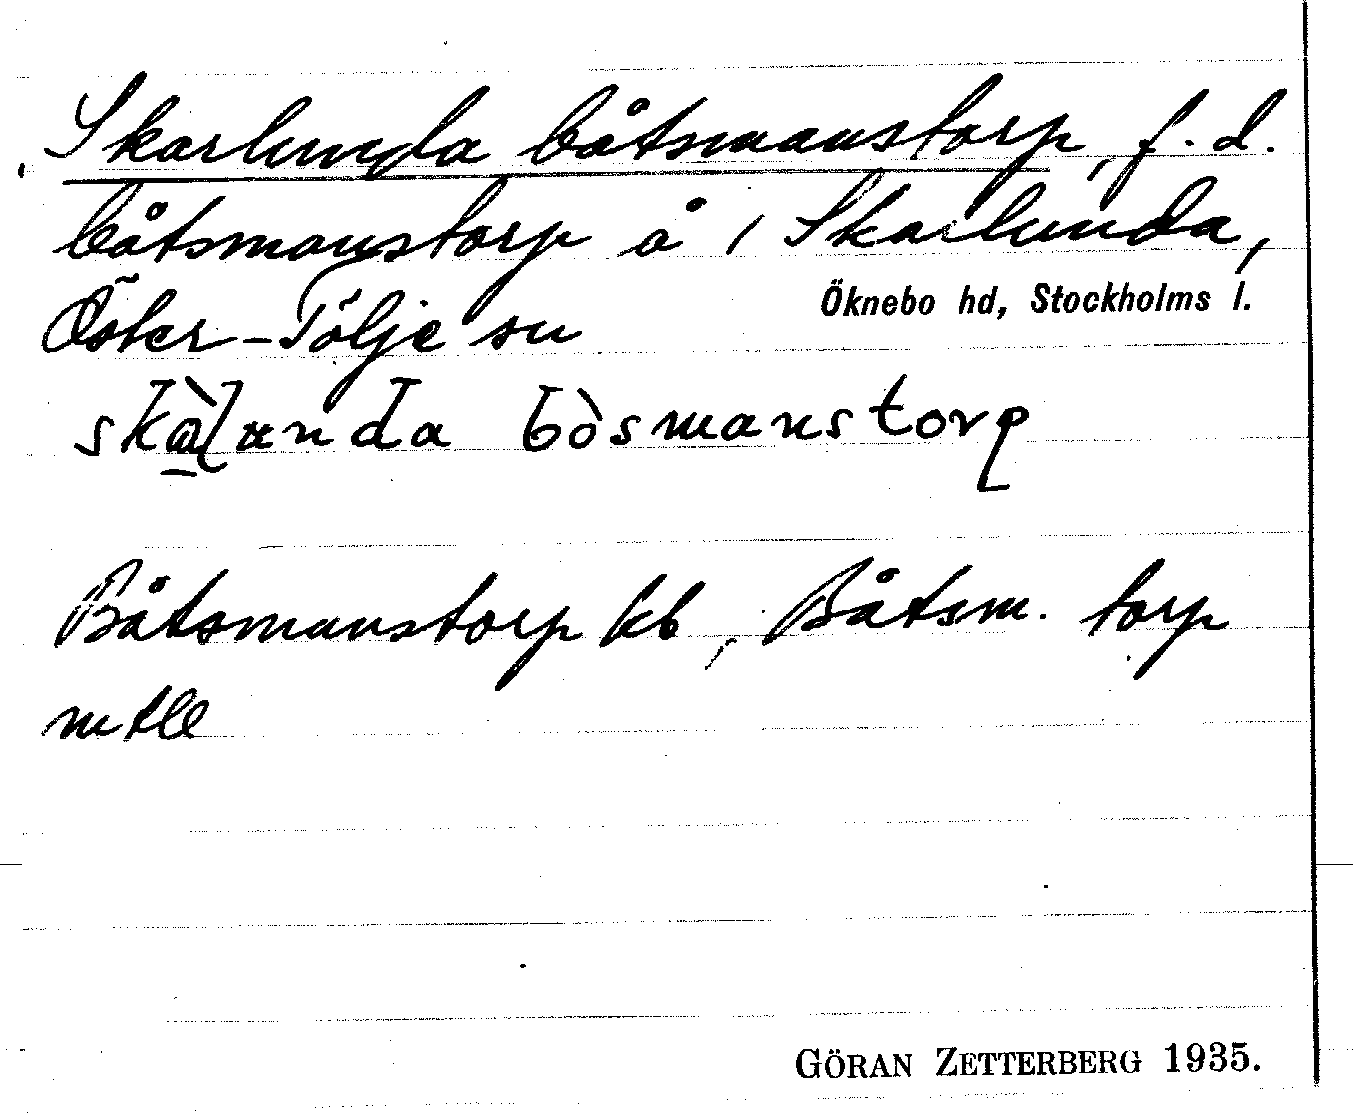 Skarlunda båtsmanstorp, f.d.
båtsmanstorp å 1 Skarlunda,
Öster-Tölje sn Öknebo hd, Stockholms l.
skàlunda bòsmanstorp
Båtsmanstorp kb, Båtsm. torp
mtll
GÖRAN ZETTERBERG 1935.